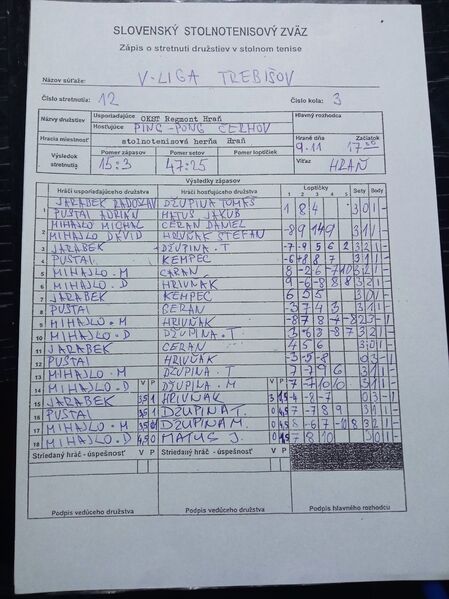 SLOVENSKÝ STOLNOTENISOVÝ ZVÄZ
Zápis o stretnutí družstiev v stolnom tenise
Názov súťaže: V-LIGA TREBIŠOV
Číslo stretnutia: 12 Číslo kola: 3
Názvy družstiev Usporiadajúce OKST Regmont Hraň Hlavný rozhodca
Hosťujúce PING-PONG ČERHOV
Hracia miestnosť stolnotenisová herňa Hraň Hrané dňa 9.11 Začiatok 17:00
Výsledok stretnutia: Pomer zápasov 15:3 Pomer setov 47:25 Pomer loptičiek Víťaz HRAŇ
Výsledky zápasov
Hráči usporiadajúceho družstva Hráči hosťujúceho družstva Loptičky Sety Body
1 2 3 4 5
1 JARABEK RADOSLAV DŽUPINA TOMÁŠ
PUŠTAI ADRIÁN MATUS JAKUB 1 8 4 3 0 1 -
2 MIHAJLO MICHAL CERAN DANIEL
MIHAJLO DÁVID HRIVŇÁK ŠTEFAN -8 9 14 9 3 1 1 -
3 JARABEK DŽUPINA.T -7 -9 5 6 2 3 2 1 -
4 PUŠTAI KEMPEC -6 8 8 7 3 1 1 -
5 MIHAJLO.M CERAN 8 -2 6 -7 10 3 2 1 -
6 MIHAJLO.D HRIVŇÁK 9 -6 -8 8 8 3 2 1 -
7 JARABEK KEMPEC 6 5 5 3 0 1 -
8 PUŠTAI CERAN -3 7 4 3 3 1 1 -
9 MIHAJLO.M HRIVŇÁK
10 MIHAJLO.D DŽUPINA.T
11 JARABEK CERAN 4 5 6 3 0 1 -
12 PUŠTAI HRIVŇÁK -3 -5 -8 0 3 - 1
13 MIHAJLO.M DŽUPINA.T 7 -7 9 6 3 1 1 -
14 MIHAJLO.D V P DŽUPINA.M V P 7 -7 10 10 3 1 1 -
15 JARABEK 3,5 1 HRIVŇÁK -4 -8 -7 0 3 - 1
16 PUŠTAI DŽUPINA T. 7 -7 8 9 3 1 1 -
17 MIHAJLO.M DŽUPINA M. 8 -6 7 3 2 1 -
18 MIHAJLO.D 4,5 0 MATUS J. 7 8 10 3 0 1 -
Striedaný hráč - úspešnosť V P Striedaný hráč - úspešnosť V P
Podpis vedúceho družstva Podpis vedúceho družstva Podpis hlavného rozhodcu